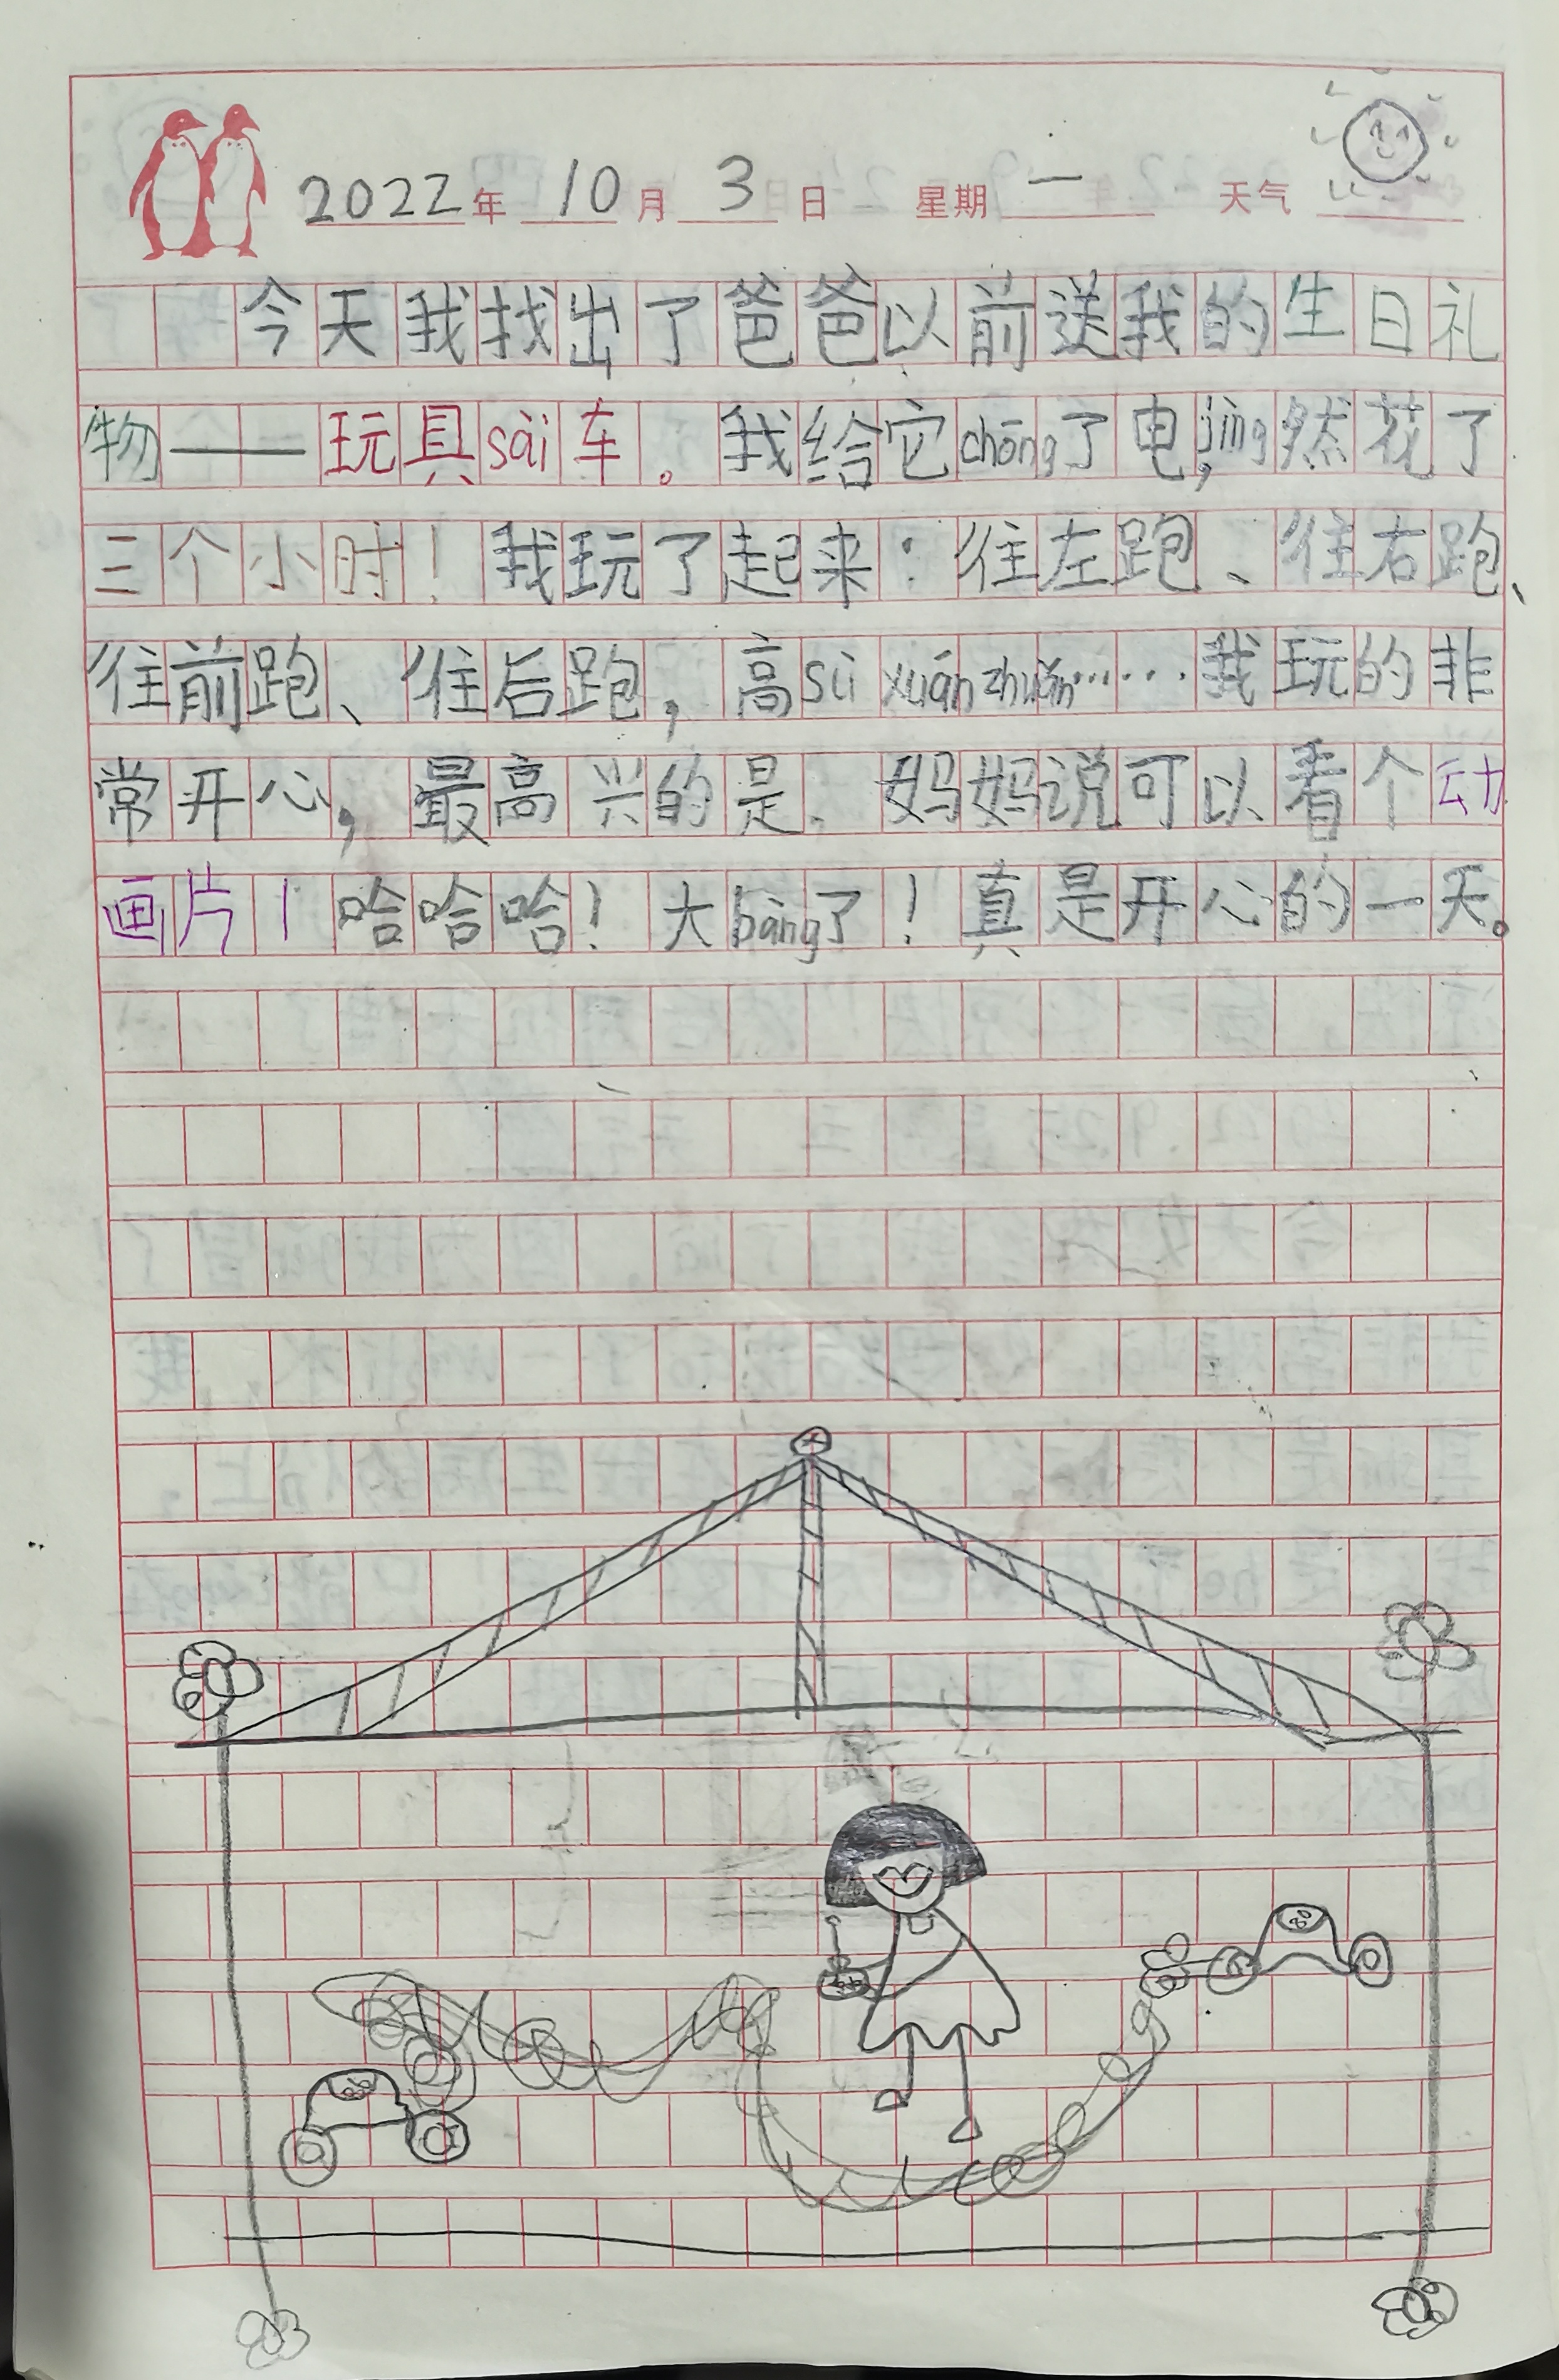 2022年 10月 3日 星期一 天气
今天我找出了爸爸以前送我的生日礼
物——玩具sài车。我给它chōng了电,jìng然花了
三个小时!我玩了起来:往左跑、往右跑、
往前跑、往后跑,高sù xuán zhuǎn……我玩的非
常开心,最高兴的是、妈妈说可以看个动
画片!哈哈哈!大bàng了!真是开心的一天。